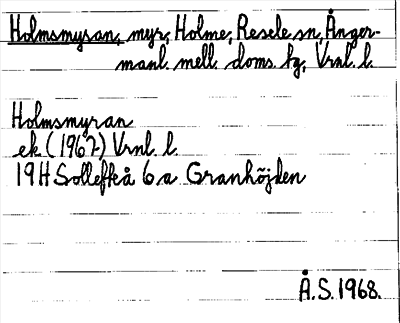 Holmsmyran, myr, Holme, Resele sn, Ånger-
manl. mell. doms. hg, Vrnl. l.
Holmsmyran
ek (1967) Vrnl. l.
19H Sollefteå 6a Granhöjden
Å.S. 1968.